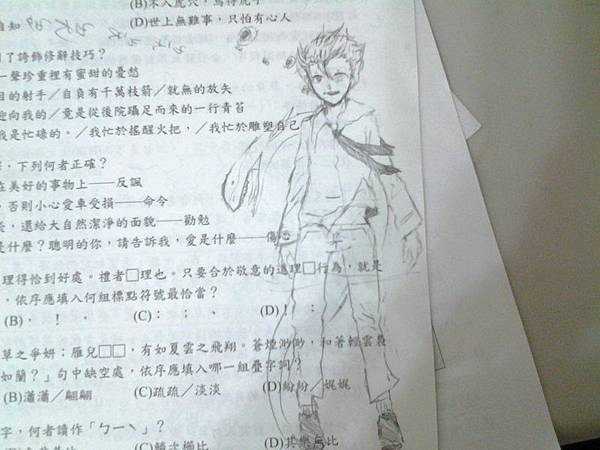 (B)不入虎穴，焉得虎子
自知
(D)世上無難事，只怕有心人
了誇飾修辭技巧？
一聲珍重裡有蜜甜的憂愁
目的射手／自負有千萬枝箭／就無的放矢
迎向我的／竟是從後院躡足而來的一行青苔
我是忙碌的。／我忙於搖醒火把，／我忙於雕塑自己
，下列何者正確？
在美好的事物上——反諷
，否則小心愛車受損——命令
長，還給大自然潔淨的面貌——勸勉
是什麼？聰明的你，請告訴我，愛是什麼——
理得恰到好處。禮者□理也。只要合於敬意的道理□行為，就是
，依序應填入何組標點符號最恰當？
(B)， ！ 、 (C)： ； 、 (D)！ ： ；
草之爭妍；雁兒□□，有如夏雲之飛翔。蒼煙渺渺，和著輕雲裊
如蘭？」句中缺空處，依序應填入哪一組疊字詞？
(B)瀟瀟／翩翩 (C)疏疏／淡淡 (D)紛紛／娓娓
字，何者讀作「ㄅㄧˋ」？
(C)鱗次櫛比 (D)其樂無比